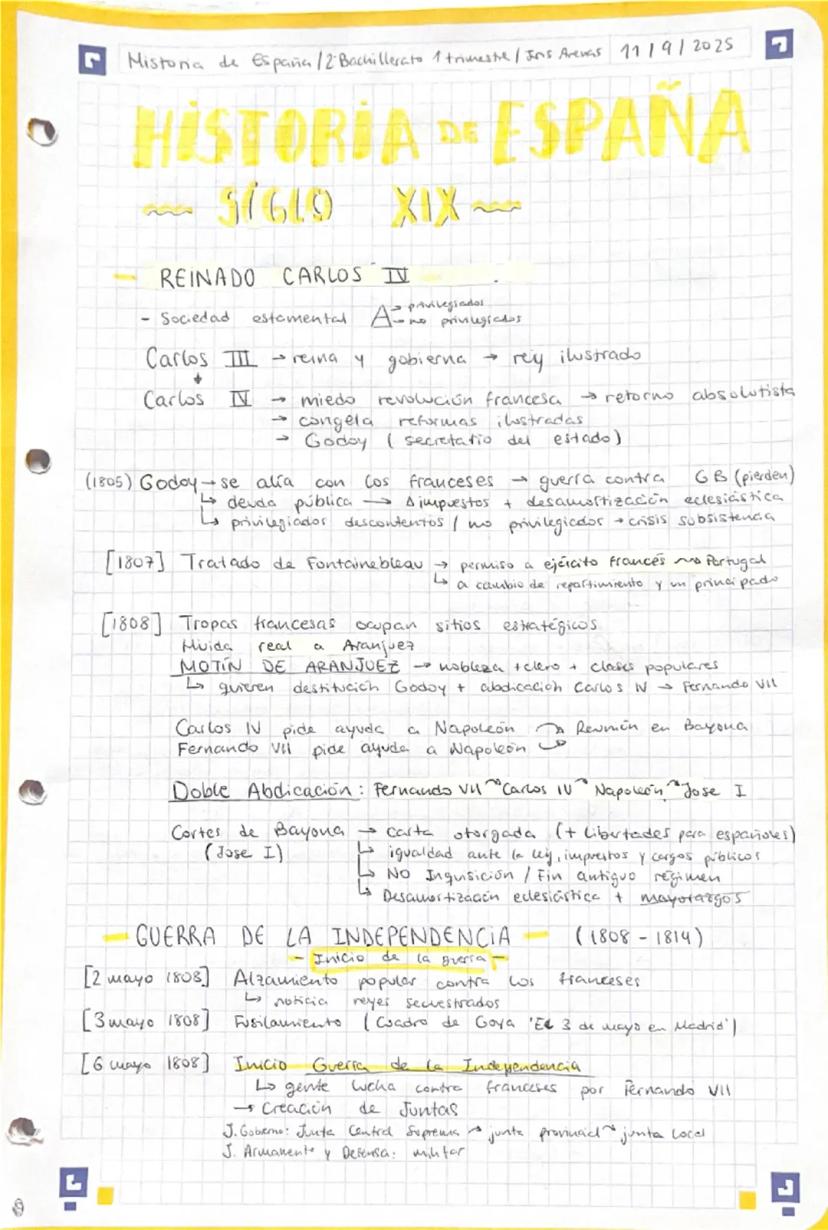 Historia de España / 2º Bachillerato 1 trimestre / Iris Arenas 11/9/2025
HISTORIA DE ESPAÑA
SIGLO XIX
- REINADO CARLOS IV
- Sociedad estamental → privilegiados
→ no privilegiados
Carlos III → reina y gobierna → rey ilustrado
Carlos IV → miedo revolución francesa → retorno absolutista
→ congela reformas ilustradas
→ Godoy (secretario del estado)
(1805) Godoy → se alía con los franceses → guerra contra GB (pierden)
↳ deuda pública → Δ impuestos + desamortización eclesiástica
↳ privilegiados descontentos / no privilegiados → crisis subsistencia
[1807] Tratado de Fontainebleau → permiso a ejército francés ⇝ Portugal
↳ a cambio de repartimiento y un principado
[1808] Tropas francesas ocupan sitios estratégicos
Huida real a Aranjuez
MOTÍN DE ARANJUEZ → nobleza + clero + clases populares
↳ quieren destitución Godoy + abdicación Carlos IV → Fernando VII
Carlos IV pide ayuda a Napoleón Reunión en Bayona
Fernando VII pide ayuda a Napoleón
Doble Abdicación: Fernando VII ⇝ Carlos IV ⇝ Napoleón ⇝ Jose I
Cortes de Bayona → carta otorgada (+ libertades para españoles)
(Jose I) ↳ igualdad ante la ley, impuestos y cargos públicos
↳ NO Inquisición / Fin antiguo régimen
↳ Desamortización eclesiástica + mayorazgos
- GUERRA DE LA INDEPENDENCIA - (1808 - 1814)
- Inicio de la guerra -
[2 mayo 1808] Alzamiento popular contra los franceses
↳ noticia reyes secuestrados
[3 mayo 1808] Fusilamiento (Cuadro de Goya 'El 3 de mayo en Madrid')
[6 mayo 1808] Inicio Guerra de la Independencia
↳ gente lucha contra franceses por Fernando VII
→ Creación de Juntas
J. Gobierno: Junta Central Suprema ⇝ junta provincial ⇝ junta local
J. Armamento y Defensa: militar